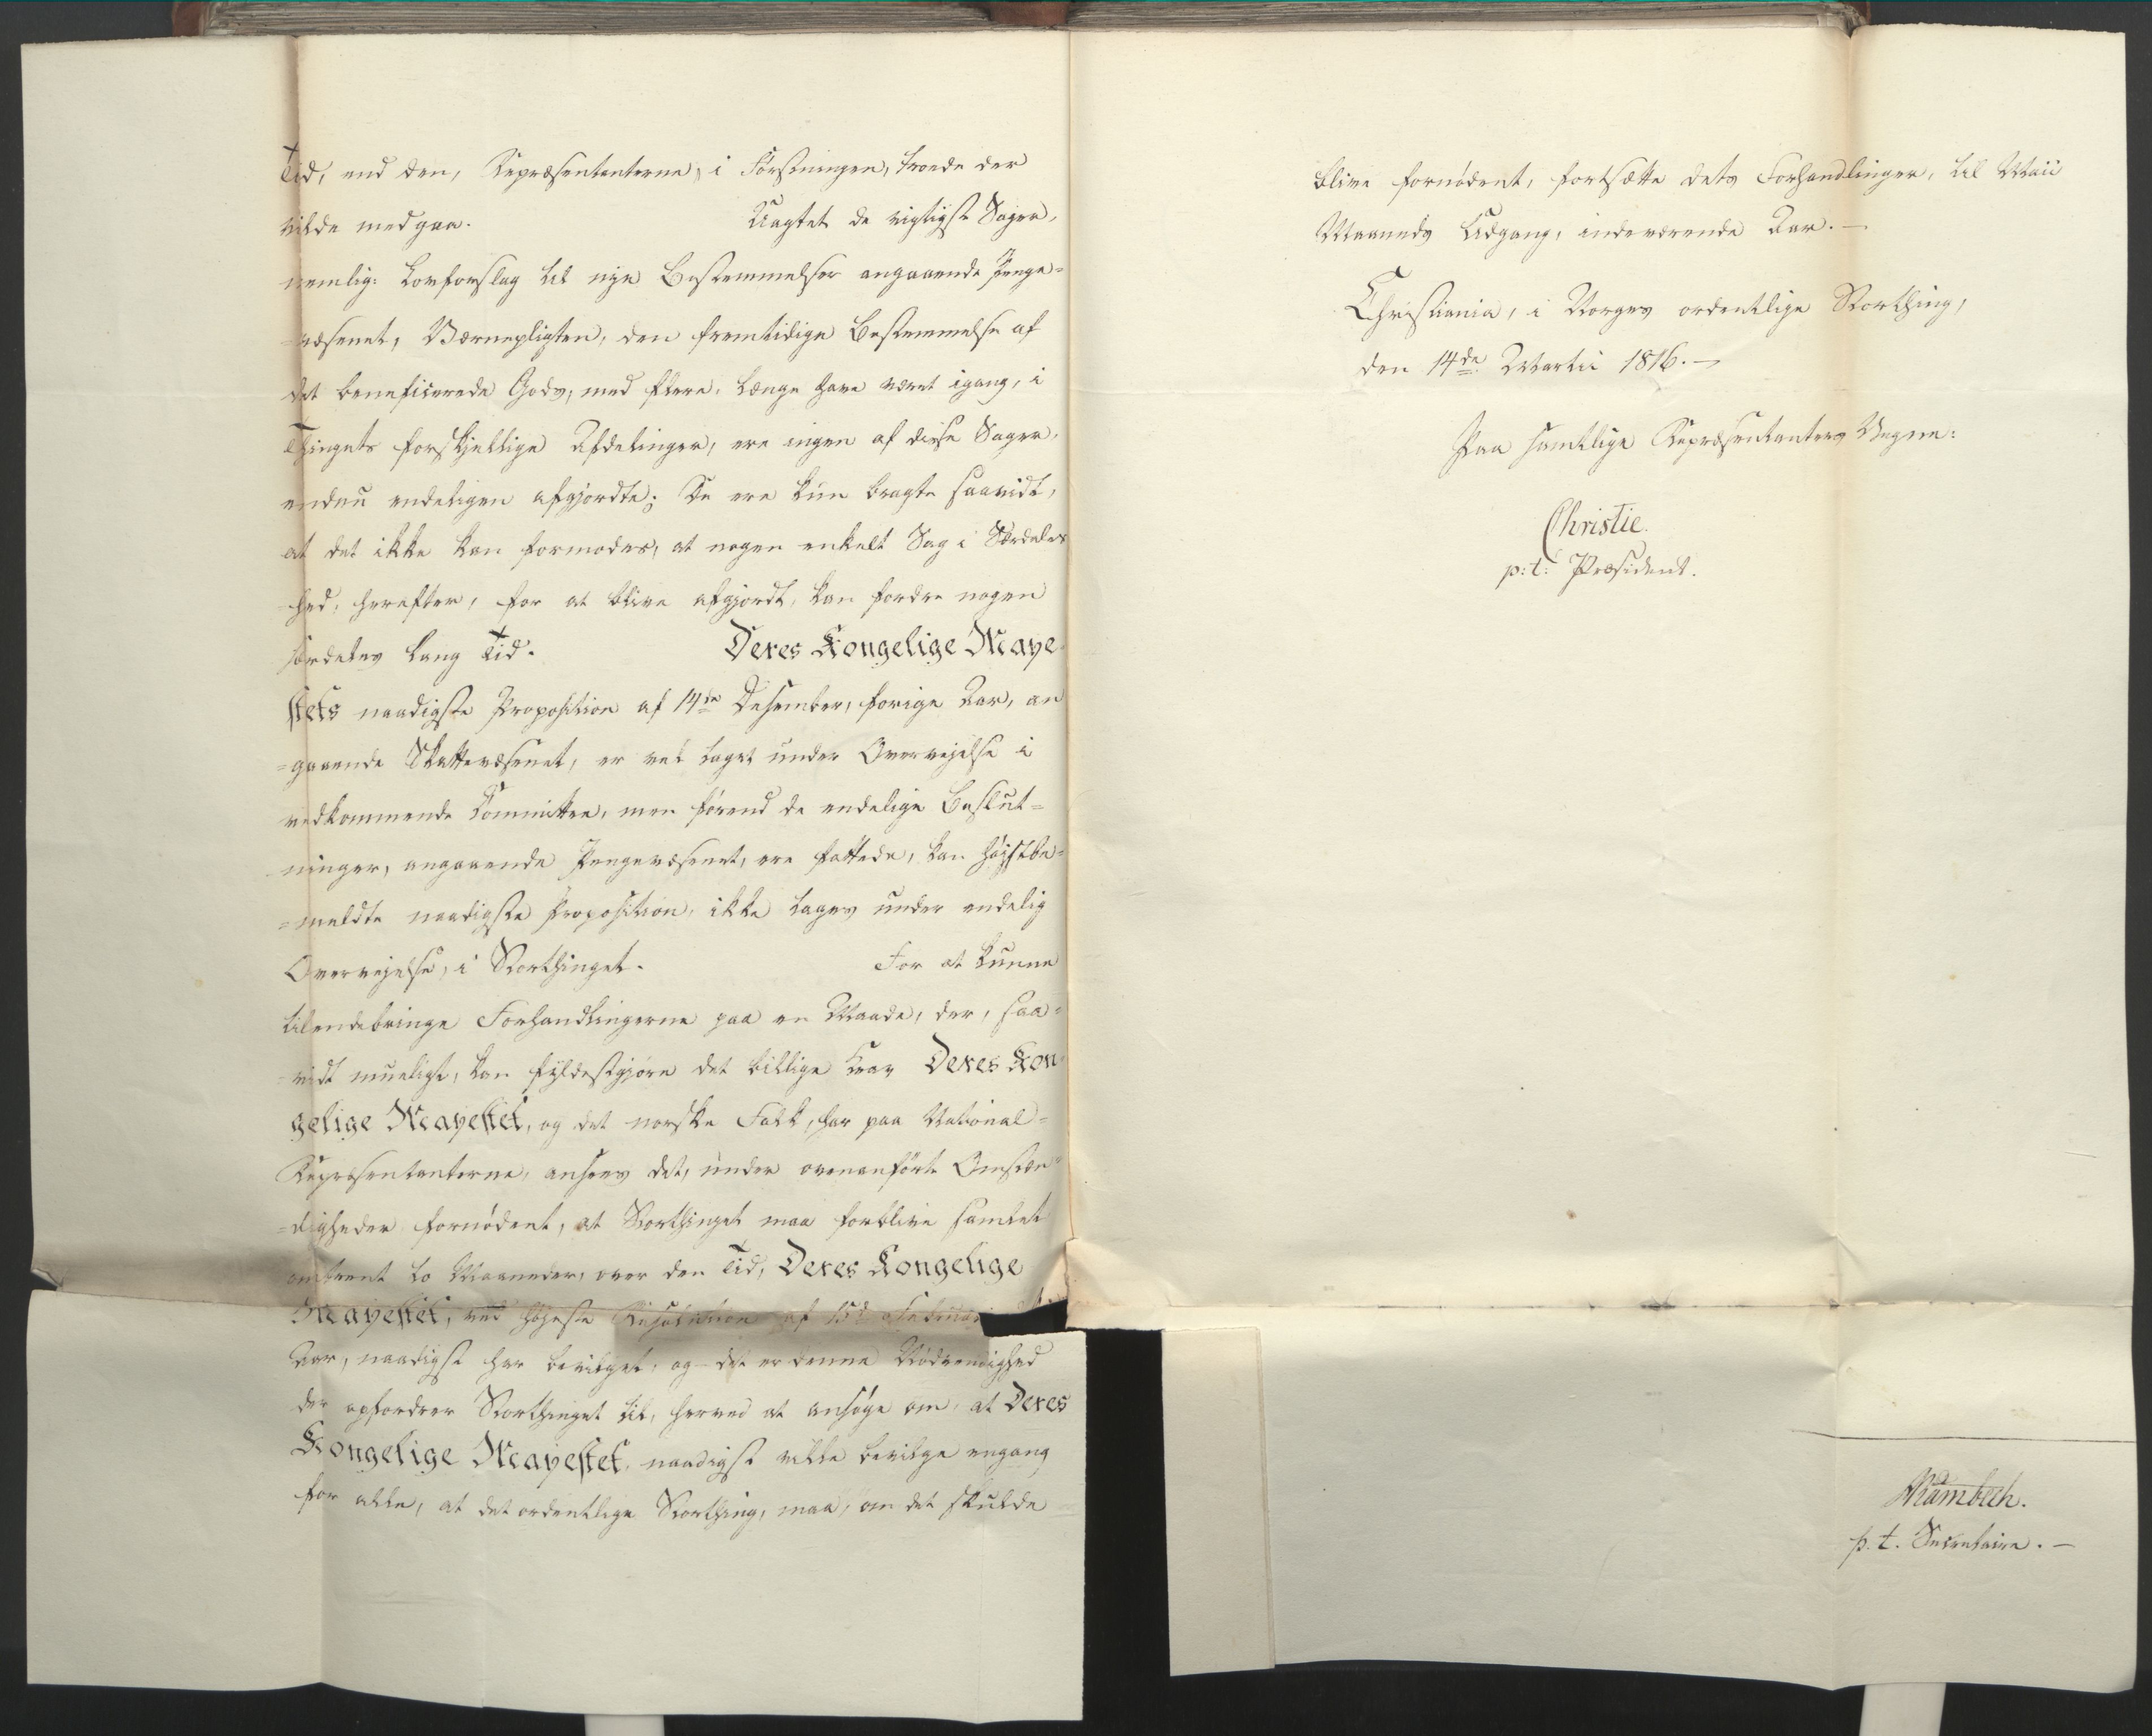 Tid, end den, Repræsentanterne, i Førstningen, troede der
vilde medgaa. Uagtet de vigtigste Sager,
nemlig: Lovforslag til nye Bestemmelser angaaende Penge-
-væsenet, Værnepligten, den fremtidige Bestemmelse af
det beneficerede Gods, med flere, længe have været igang, i
Thingets forskjellige Afdelinger, ere ingen af disse Sager,
endnu endeligen afgjordte; De ere kun bragte saavidt,
at det ikke kan formodes, at nogen enkelt Sag i Særdeles
-hed, herefter, for at blive afgjordt, kan fordre nogen
særdeles lang Tid. Deres Kongelige Maye
stets naadigste Proposition af 14de Desember, forige Aar, an
-gaaende Skattevæsenet, er vel taget under Overvejelse i
vedkommende Committee, men førend de endelige Beslut-
ninger, angaaende Pengevæsenet, ere fattede, kan højstbe-
-meldte naadigste Proposition, ikke tages under endelig
Overvejelse, i Storthinget. For at kunne
tilendebringe Forhandlingerne paa en Maade, der, saa-
-vidt mueligt, kan fyldestgjøre det billige Krav Deres Kon-
gelige Mayestet, og det norske Folk, har paa National-
Repræsentanterne, ansees det, under ovenanførte Omstæn-
-digheder fornødent, at Storthinget maa forblive samlet
omtrent to Maaneder, over den Tid, Deres Kongelige
Mayestet, ved højeste Resolution af 15de Februar
Aar, naadigst har bevilget, og det er denne Nødvendighed
der opfordrer Storthinget til, herved at ansøge om, at Deres
Kongelige Mayestet, naadigst ville bevilge engang
for alle, at det ordentlige Storthing, maa, om det skulde
blive fornødent, fortsætte dets Forhandlinger, til Maii
Maaneds Udgang, indeværende Aar. —
Christiania, i Norges ordentlige Storthing,
den 14de Martii 1816. —
Paa samtlige Repræsentanters Vegne:
Christie.
p: t: Præsident.
p. t. Secretaire. —